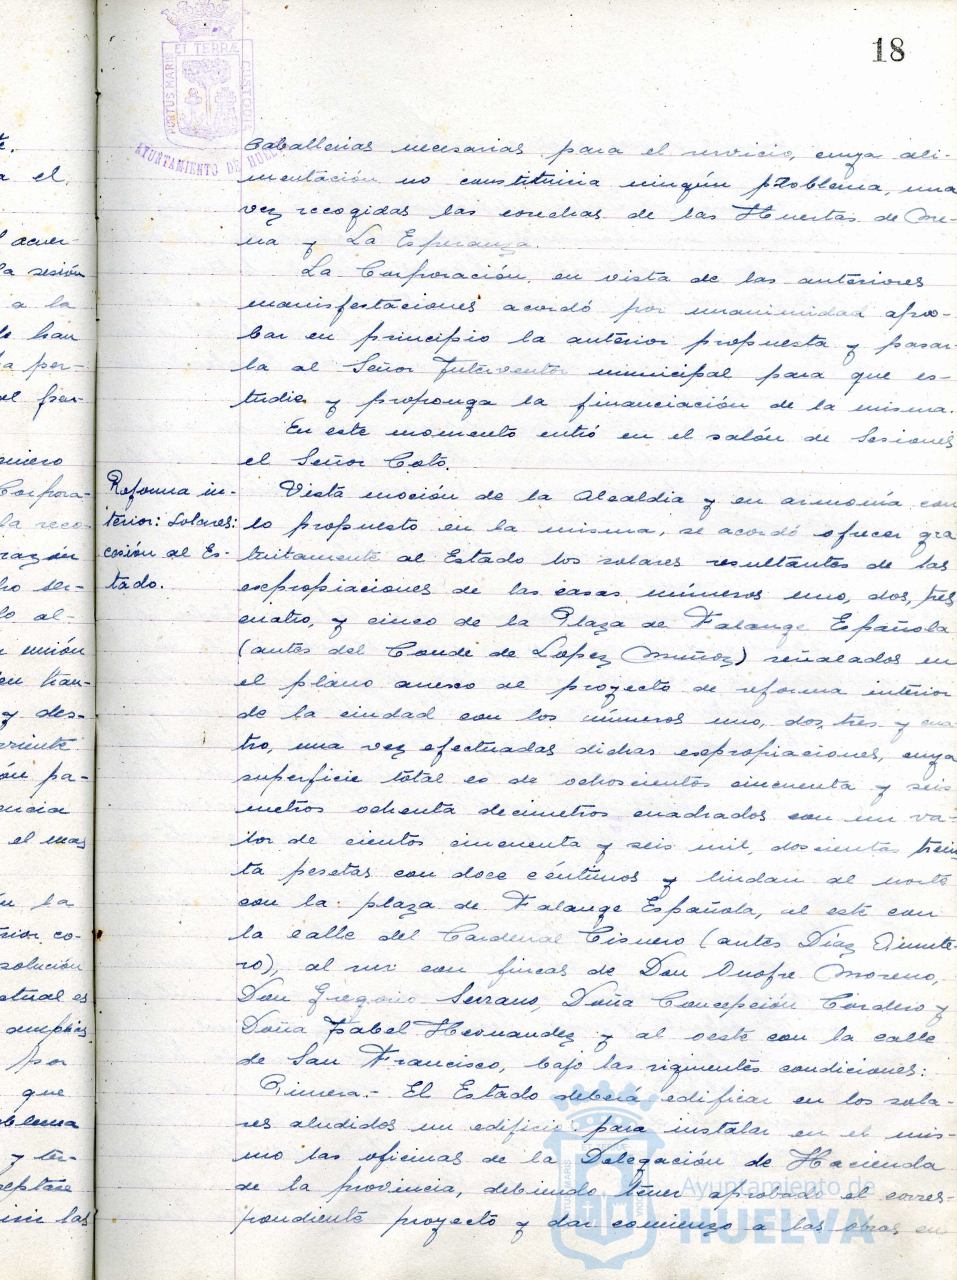 18
PORTUS MARIS ET TERRÆ CUSTODIA
AYUNTAMIENTO DE HUELVA
caballerias necesarias para el servicio, cuya ali-
mentación no constituiria ningún problema, una
vez recogidas las cosechas de las Huertas de Me-
na y La Esperanza.
La Corporación, en vista de las anteriores
manisfestaciones acordó por unanimidad apro-
bar en principio la anterior propuesta y pasar-
la al Señor Interventor municipal para que es-
tudie y proponga la financiación de la misma.
En este momento entró en el salón de Sesiones
el Señor Coto.
Reforma in-
terior: Solares:
cesión al Es-
tado.
Vista moción de la Alcaldia y en armonía con
lo propuesto en la misma, se acordó ofrecer gra
tuitamente al Estado los solares resultantes de las
expropiaciones de las casas números uno, dos, tres
cuatro, y cinco de la Plaza de Falange Española
(antes del Conde de Lopez Muñoz) señalados en
el plano anexo al proyecto de reforma interior
de la ciudad con los números uno, dos, tres y cua
tro, una vez efectuadas dichas expropiaciones, cuya
superficie total es de ochoscientos cincuenta y seis
metros ochenta decimetros cuadrados con un va-
lor de cientos cincuenta y seis mil, doscientas trein
ta pesetas con doce céntimos y lindan al norte
con la plaza de Falange Española, al este con
la calle del Cardenal Cisnero (antes Diaz Quinte-
ro), al sur con fincas de Don Onofre Moreno,
Don Gregorio Serrano, Doña Concepción Cordero y
Doña Isabel Hernandez y al oeste con la calle
de San Francisco, bajo las siguientes condiciones:
Primera.- El Estado deberá edificar en los sola-
res aludidos un edificio para instalar en el mis-
mo las oficinas de la Delegación de Hacienda
de la provincia, debiendo tener aprobado el corres-
pondiente proyecto y dar comienzo a las obras en
Ayuntamiento de
HUELVA